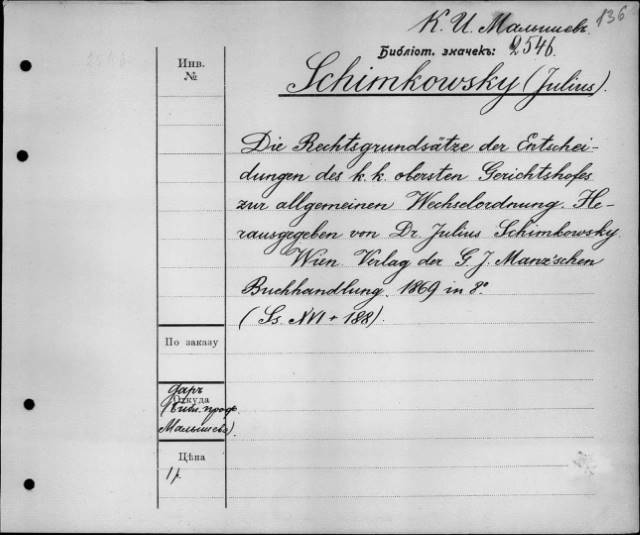 136
К. И. Малышевъ.
Библіот. значекъ: 2546.
Schimkowsky (Julius).
Инв.
№
Die Rechtsgrundsätze der Entschei-
dungen des k. k. obersten Gerichtshofes
zur allgemeinen Wechselordnung. He-
rausgegeben von Dr. Julius Schimkowsky.
Wien. Verlag der G. J. Manz'schen
Buchhandlung. 1869 in 8°.
(Ss. XVI + 188).
По заказу
Откуда
даръ
(библ. проф.
Малышева)
Цѣна
1 р